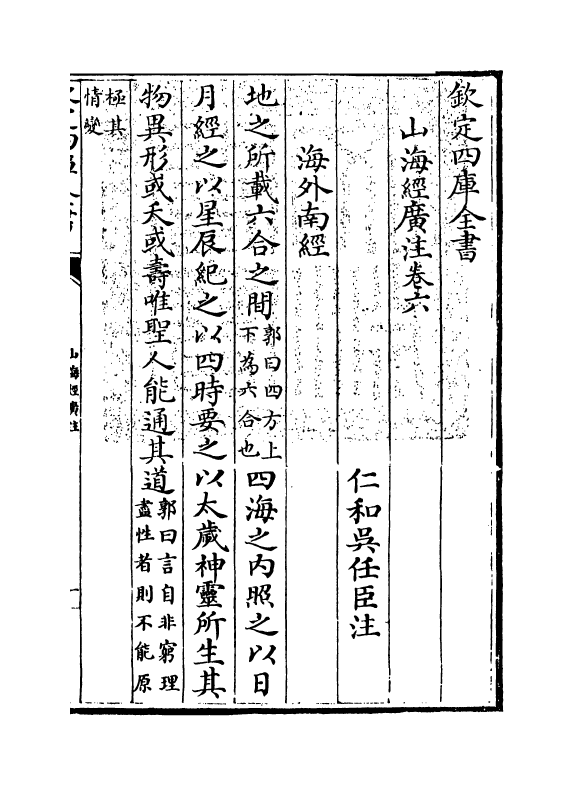 欽定四庫全書
山海經廣注卷六
仁和吳任臣注
海外南經
地之所載六合之間郭曰四方上下為六合也四海之内照之以日
月經之以星辰紀之以四時要之以太歲神靈所生其
物異形或夭或壽唯聖人能通其道郭曰言自非窮理盡性者則不能原
極其情變
山海經廣注
一